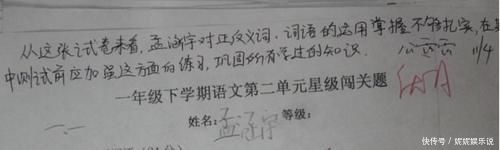 从这张试卷来看,孟涵宇对正反义词、词语的运用掌握不够扎实,在期
中测试前应加强这方面的练习,巩固所有学过的知识。
11/4
一年级下学期语文第二单元星级闯关题
姓名:孟涵宇 等级:
快传号 / 妮妮娱乐说